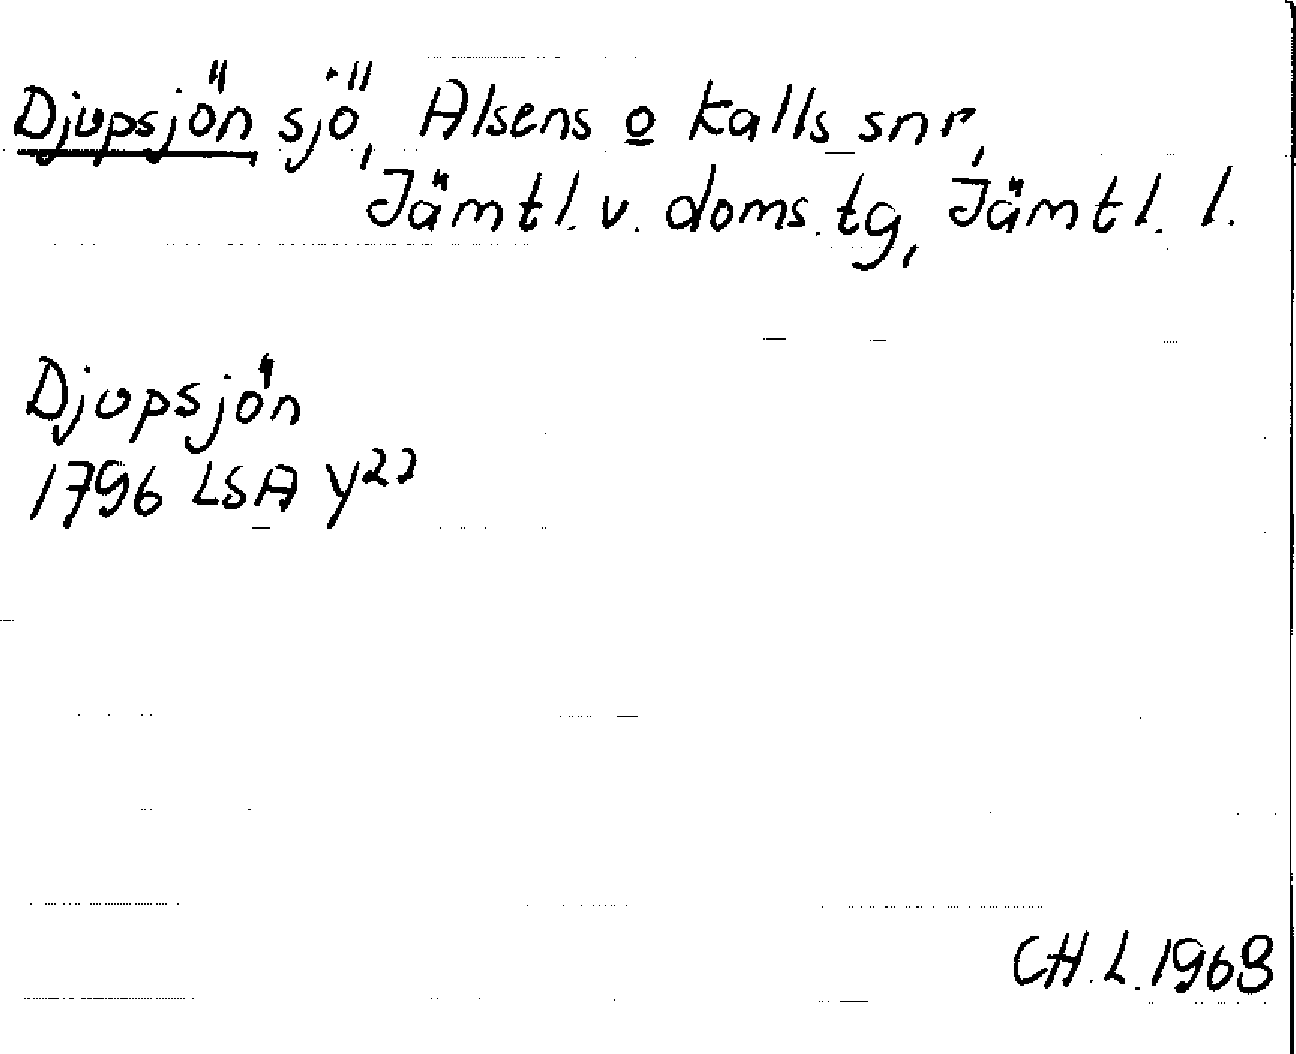 Djupsjön sjö, Alsens o Kalls snr,
Jämtl. v. doms. tg, Jämtl. l.
Djupsjön
1796 LSA Y22
CH. L. 1968